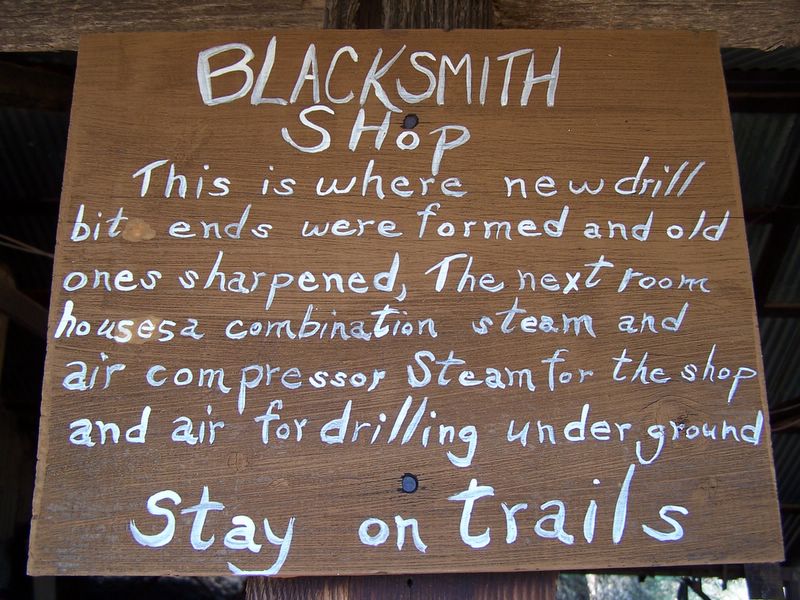 BLACKSMITH
SHOP
This is where new drill
bit ends were formed and old
ones sharpened, The next room
houses a combination steam and
air compressor Steam for the shop
and air for drilling underground
Stay on trails